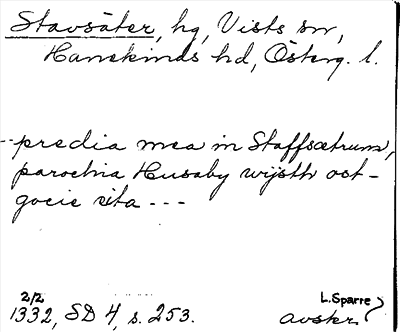 Stavsäter, hg, Vists sn,
Hanekinds hd, Österg. l.
-- predia mea in Staffsætrum,
parochia Husaby wijsth ost-
gocie sita ---
2/2
1332, SD 4, s. 253.
L. Sparre
avskr.